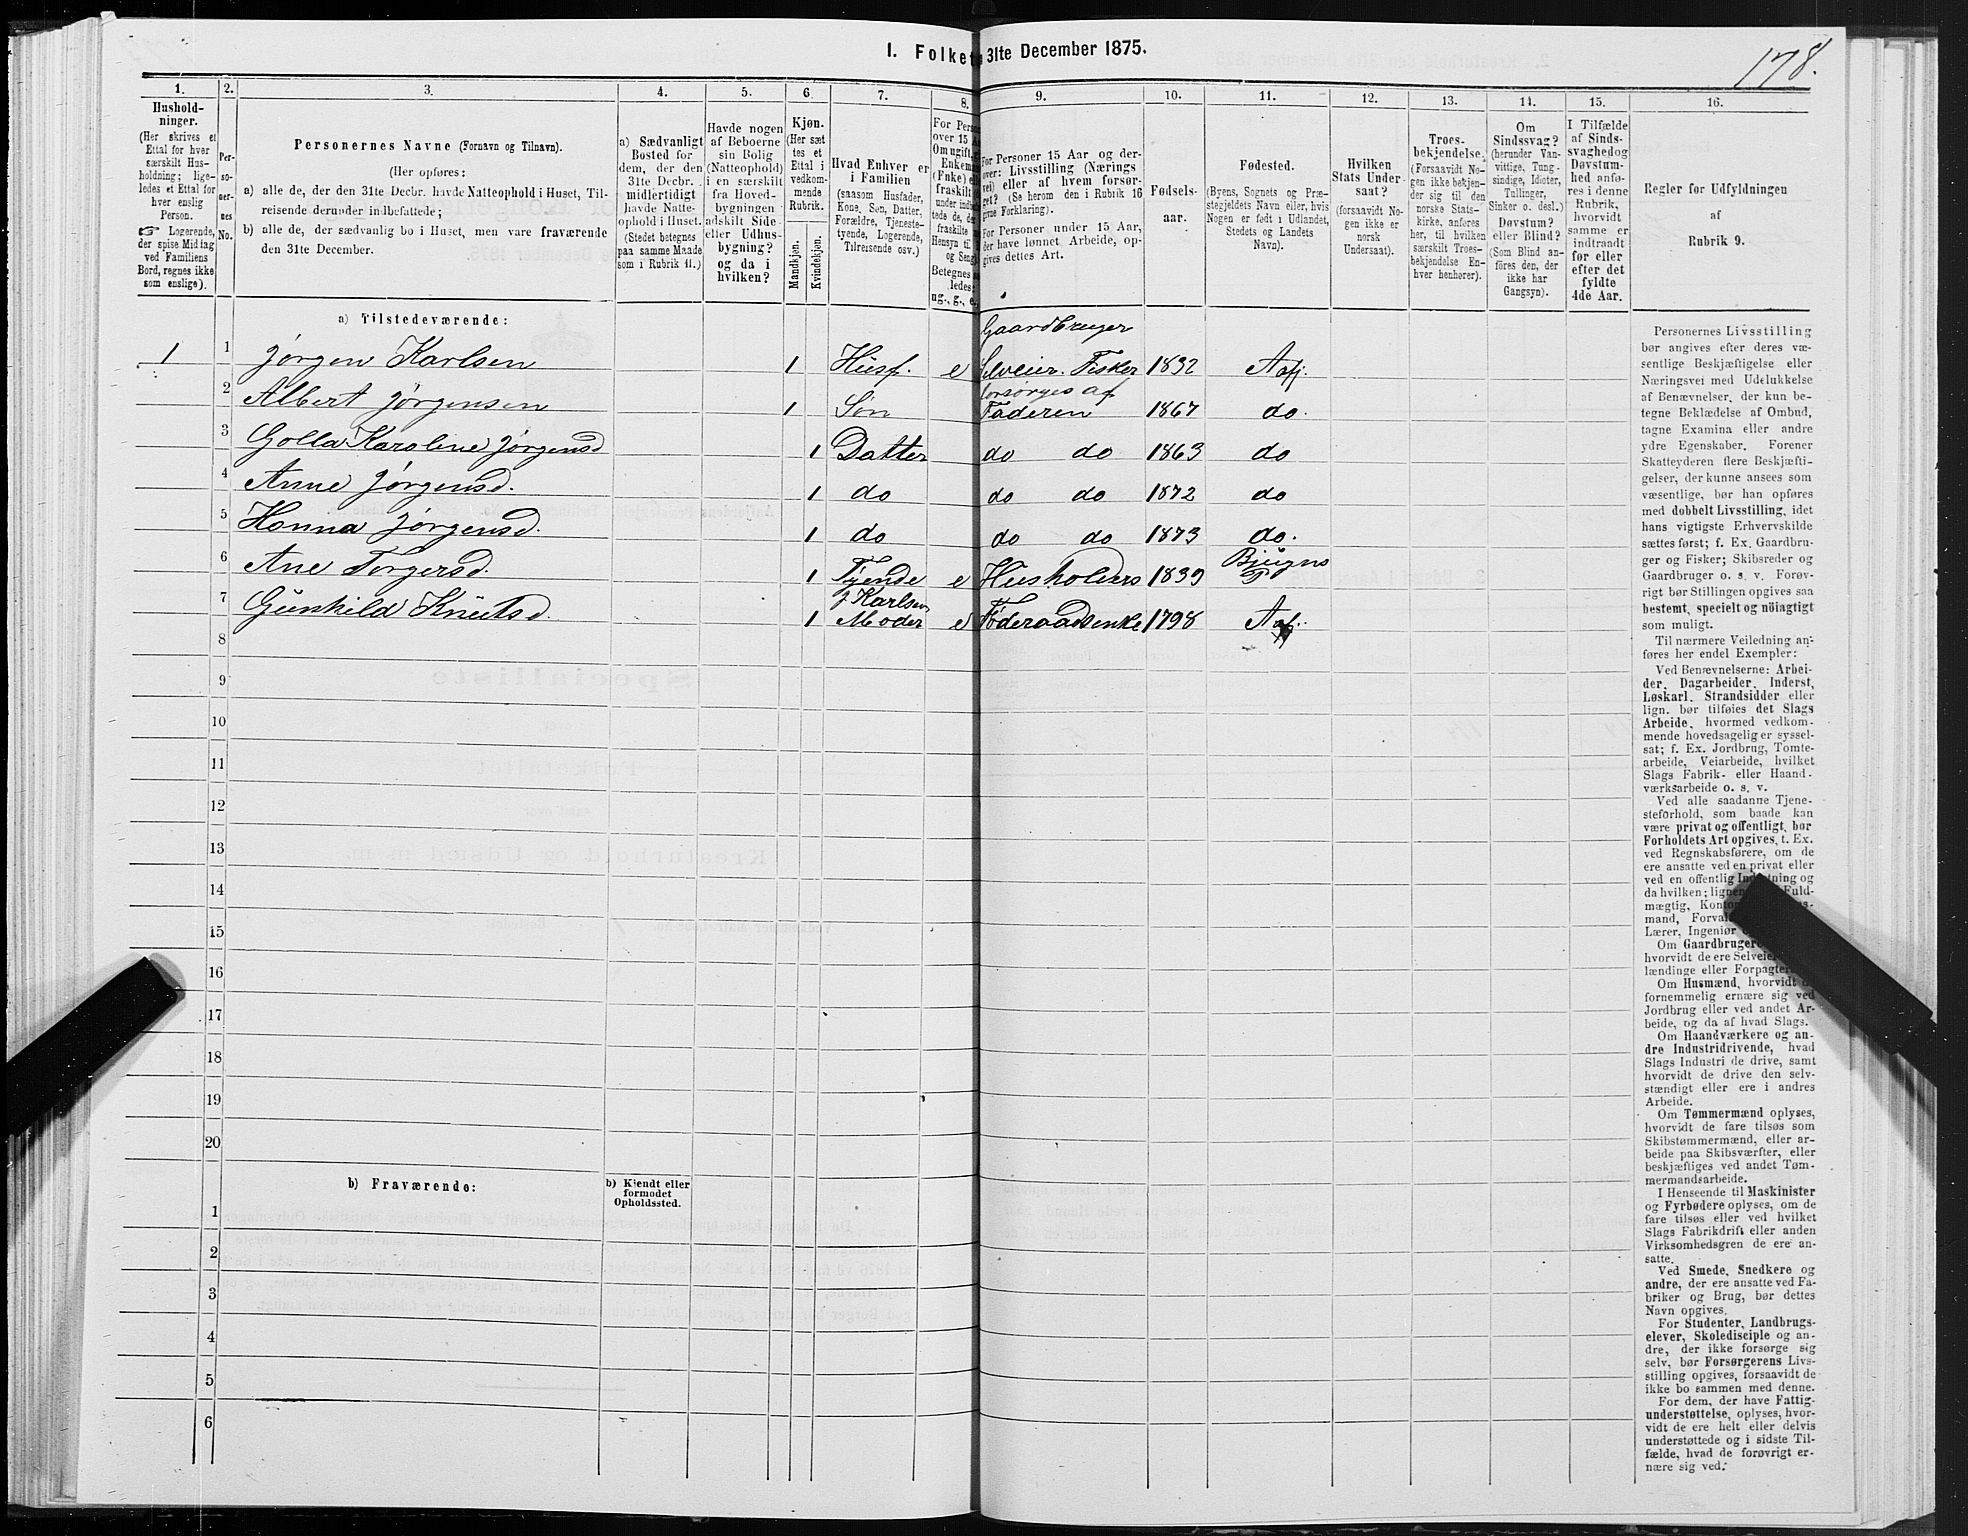 I. Folket
31te December 1875.
178.
1.
2.
3.
4.
5.
6.
7.
8.
9.
10.
11.
12.
13.
14.
15.
16.
Hushold-
ninger.
(Her skrives et
Ettal for hver
særskilt Hus-
holdning; lige-
ledes et Ettal for
hver enslig
Person.
☞ Logerende,
der spise Middag
ved Familiens
Bord, regnes ikke
som enslige).
Per-
so-
ner-
nes
No.
Personernes Navne (Fornavn og Tilnavn).
(Her opføres:
a) alle de, der den 31te Decbr. havde Natteophold i Huset, Til-
reisende derunder indbefattede;
b) alle de, der sædvanlig bo i Huset, men vare fraværende
den 31te December.
a) Sædvanligt
Bosted for
dem, der den
31te Decbr.
midlertidigt
havde Natte-
ophold i Huset.
(Stedet betegnes
paa samme Maade
som i Rubrik 11.)
Havde nogen
af Beboerne
sin Bolig
(Natteophold)
i en særskilt
fra Hoved-
bygningen
adskilt Side-
eller Udhus-
bygning?
og da i
hvilken?
Kjøn.
(Her sæt
tes et
Ettal i
vedkom-
mende
Rubrik.
Mandkjøn.
Kvindekjøn.
Hvad Enhver er
i Familien
(saasom Husfader,
Kone, Søn, Datter,
Forældre, Tjeneste-
tyende, Logerende,
Tilreisende osv.)
For Perso
over 15 A
Om ugift,
Enkem
(Enke) el
fraskilt
under indb
tede de, de
fraskilte
Hensyn til
og Seng
Betegnes s
ledes:
ug., g., e.
For Personer 15 Aar og der-
over: Livsstilling (Nærings
vei) eller af hvem forsør-
get? (Se herom den i Rubrik 16
givne Forklaring).
For Personer under 15 Aar,
der have lønnet Arbeide, op-
gives dettes Art.
Fødsels-
aar.
Fødested.
(Byens, Sognets og Præ-
stegjeldets Navn eller, hvis
Nogen er født i Udlandet,
Stedets og Landets
Navn).
Hvilken
Stats Under-
saat?
(forsaavidt No-
gen ikke er
norsk
Undersaat).
Troes-
bekjendelse.
(Forsaavidt No-
gen ikke bekjen-
der sig til den
norske Stats-
kirke, anføres
her, til hvilken
særskilt Troes-
bekjendelse En-
hver henhører).
Om
Sindssvag?
(herunder Van-
vittige, Tung-
sindige, Idioter,
Tullinger,
Sinker o. desl.)
Døvstum?
eller Blind?
(Som Blind an-
føres den, der
ikke har
Gangsyn).
I Tilfælde
af Sinds-
svaghed og
Døvstum-
hed anfø-
res i denne
Rubrik,
hvorvidt
samme er
indtraadt
før eller
efter det
fyldte
4de Aar.
Regler for Udfyldningen
af
Rubrik 9.
a) Tilstedeværende:
1 1 Jørgen Karlsen 1 Husf. e Gaardbruger
Selveier. Fisker 1832 Aafj.
2 Albert Jørgensen 1 Søn forsørges af
Faderen 1867 do.
3 Golla Karoline Jørgensd 1 Datter do do 1863 do
4 Anne Jørgensd. 1 do do do 1872 do
5 Hanna Jørgensd. 1 do do do 1873 do.
6 Ane Torgersd. 1 Tyende e Husholders 1839 Bjugns
P
7 Gunhild Knutsd. 1 J Karlsen
Moder e Føderaadsenke 1798 Aafj.
8
9
10
11
12
13
14
15
16
17
18
19
20
b) Fraværende:
b) Kjendt eller
formodet
Opholdssted.
1
2
3
4
5
6
Personernes Livsstilling
bør angives efter deres væ-
sentlige Beskjæftigelse eller
Næringsvei med Udelukkelse
af Benævnelser, der kun be-
tegne Beklædelse af Ombud,
tagne Examina eller andre
ydre Egenskaber. Forener
Skatteyderen flere Beskjæfti-
gelser, der kunne ansees som
væsentlige, bør han opføres
med dobbelt Livsstilling, idet
hans vigtigste Erhvervskilde
sættes først; f. Ex. Gaardbru-
ger og Fisker; Skibsreder og
Gaardbruger o. s. v. Forøv-
rigt bør Stillingen opgives saa
bestemt, specielt og nöiagtigt
som muligt.
Til nærmere Veiledning an-
føres her endel Exempler:
Ved Benævnelserne: Arbei-
der, Dagarbeider, Inderst,
Løskarl, Strandsidder eller
lign. bør tilføies det Slags
Arbeide, hvormed vedkom-
mende hovedsagelig er syssel-
sat; f. Ex. Jordbrug, Tomte-
arbeide, Veiarbeide, hvilket
Slags Fabrik- eller Haand-
værksarbeide o. s. v.
Ved alle saadanne Tjene-
steforhold, som baade kan
være privat og offentligt, bør
Forholdets Art opgives, t. Ex.
ved Regnskabsførere, om de
ere ansatte ved en privat eller
ved en offentlig Indretning og
da hvilken; lignen Fuld-
mægtig, Konto
mand, Forval
Lærer, Ingeniør
Om Gaardbrugere
hvorvidt de ere Selveie
lændinge eller Forpagte
Om Husmænd, hvorvidt
fornemmelig ernære sig ved
Jordbrug eller ved andet Ar-
beide, og da af hvad Slags.
Om Haandværkere og an-
dre Industridrivende, hvad
Slags Industri de drive, samt
hvorvidt de drive den selv-
stændigt eller ere i andres
Arbeide.
Om Tømmermænd oplyses,
hvorvidt de fare tilsøs som
Skibstømmermænd, eller ar-
beide paa Skibsværfter, eller
beskjæftiges ved andet Tøm-
mermandsarbeide.
I Henseende til Maskinister
og Fyrbødere oplyses, om de
fare tilsøs eller ved hvilket
Slags Fabrikdrift eller anden
Virksomhedsgren de ere an-
satte.
Ved Smede, Snedkere og
andre, der ere ansatte ved Fa-
briker og Brug, bør dettes
Navn opgives.
For Studenter, Landbrugs-
elever, Skoledisciple og an-
dre, der ikke forsørge sig
selv, bør Forsørgerens Livs-
stilling opgives, forsaavidt de
ikke bo sammen med denne.
For dem, der have Fattig-
understøttelse, oplyses, hvor-
vidt de ere helt eller delvis
understøttede og i sidste Til-
fælde, hvad de forøvrigt er-
nære sig ved.